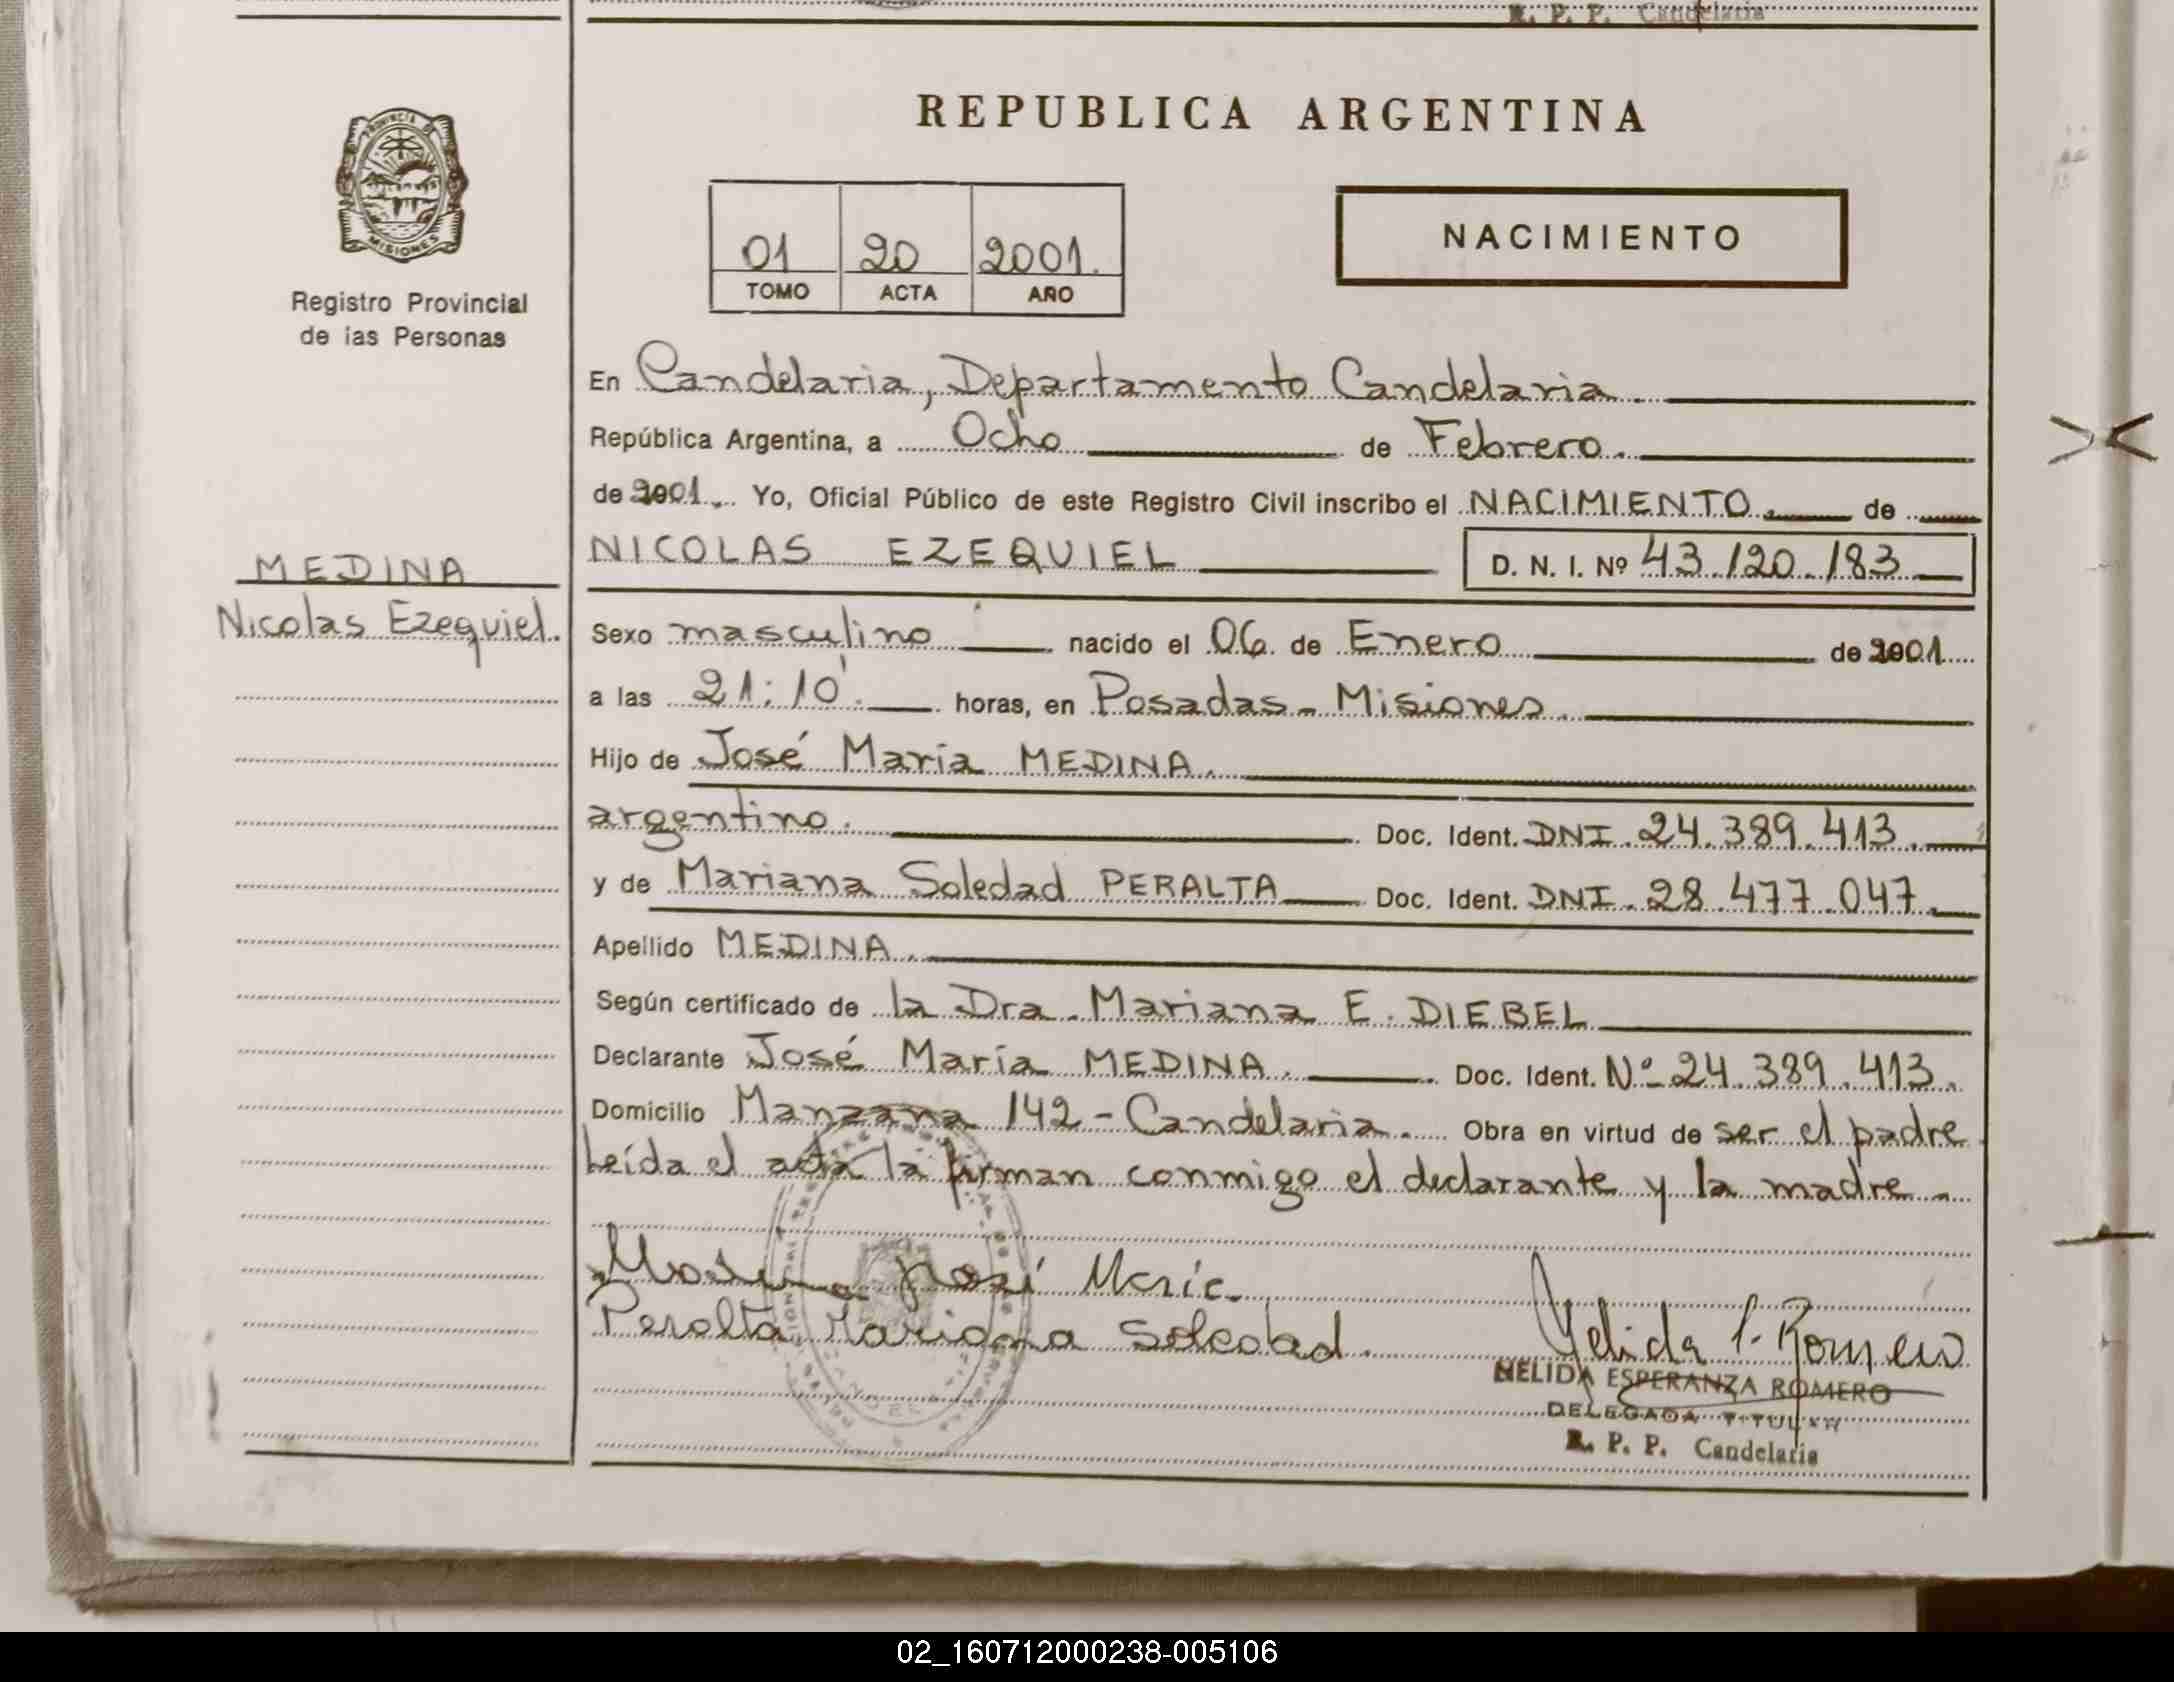 R. P. P. Candelaria
REPUBLICA ARGENTINA
PROVINCIA DE
MISIONES
Registro Provincial
de las Personas
01 20 2001.
TOMO ACTA AÑO
NACIMIENTO
En Candelaria, Departamento Candelaria.
República Argentina, a Ocho de Febrero.
de 2001. Yo, Oficial Público de este Registro Civil inscribo el NACIMIENTO. de
MEDINA
Nicolas Ezequiel.
NICOLAS EZEQUIEL D. N. I. Nº 43.120.183
Sexo masculino nacido el 06 de Enero de 2001
a las 21:10'. horas, en Posadas - Misiones.
Hijo de José María MEDINA.
argentino. Doc. Ident. DNI. 24.389.413.
y de Mariana Soledad PERALTA Doc. Ident. DNI. 28.477.047.
Apellido MEDINA.
Según certificado de la Dra. Mariana E. DIEBEL
Declarante José María MEDINA. Doc. Ident. Nº 24.389.413.
Domicilio Manzana 142 - Candelaria. Obra en virtud de ser el padre
Leída el acta la firman conmigo el declarante y la madre.
José María
Peralta Mariana Soledad.
Nelida E. Romero
NELIDA ESPERANZA ROMERO
DELEGADA TITULAR
R. P. P. Candelaria
02_160712000238-005106